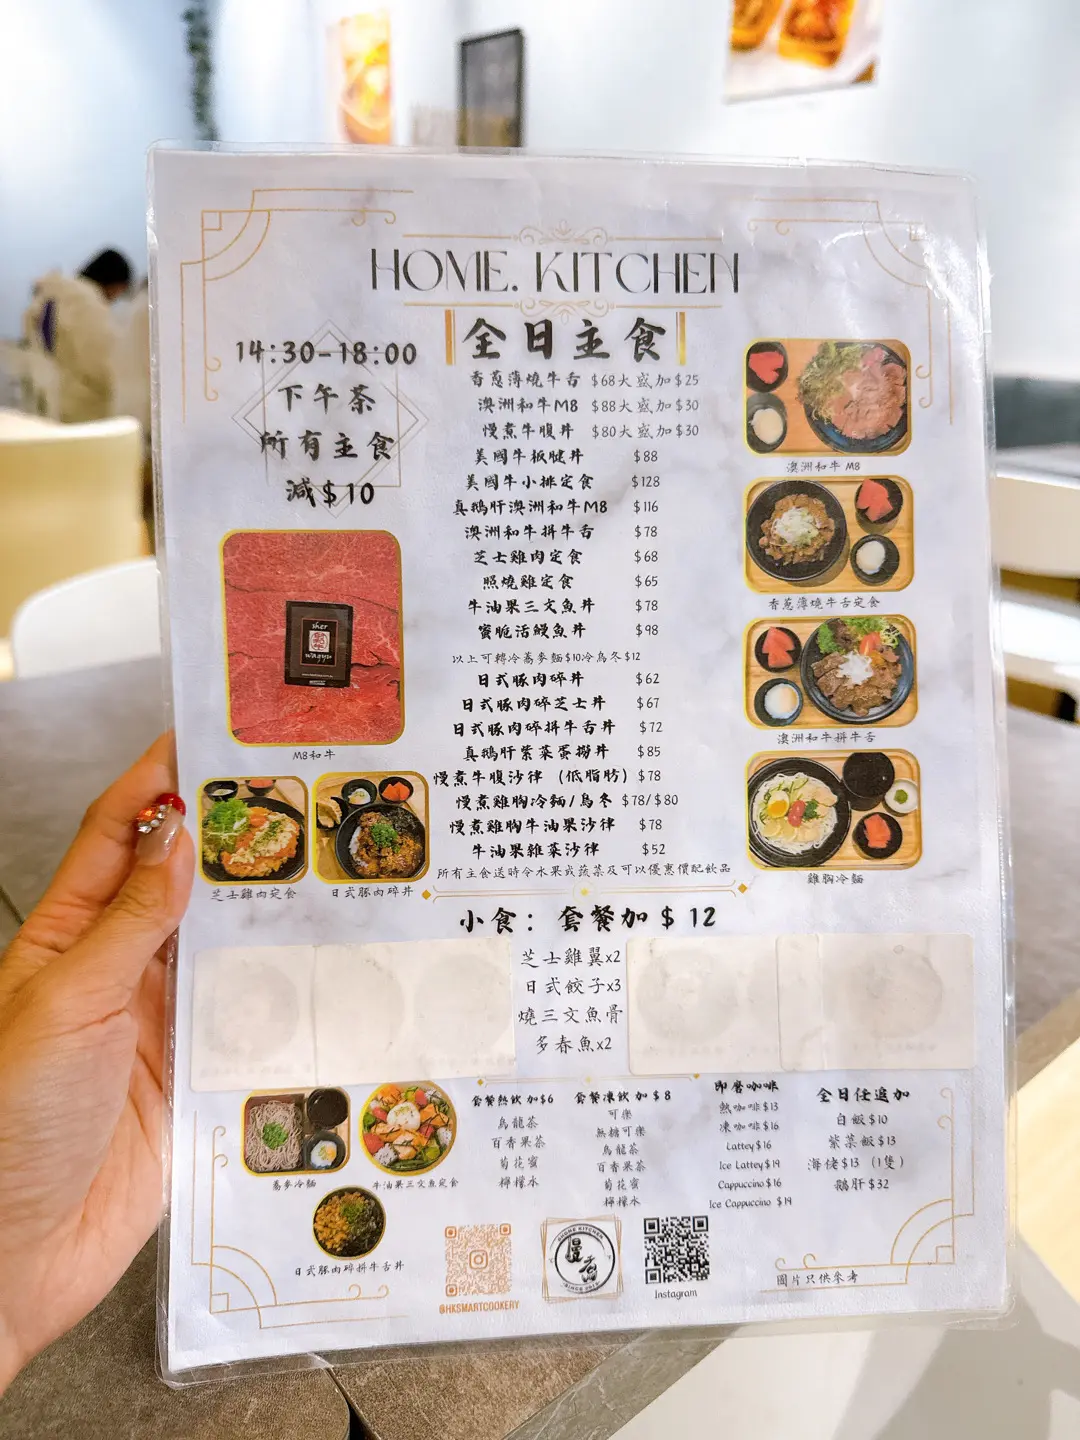 HOME. KITCHEN
14:30-18:00
下午茶
所有主食
減$10
全日主食
香蔥薄燒牛舌 $68大盛加$25
澳洲和牛M8 $88大盛加$30
慢煮牛腹丼 $80大盛加$30
美國牛板腱丼 $88
美國牛小排定食 $128
真鵝肝澳洲和牛M8 $116
澳洲和牛拼牛舌 $78
芝士雞肉定食 $68
照燒雞定食 $65
牛油果三文魚丼 $78
蜜脆活鰻魚丼 $98
以上可轉冷蕎麥麵$10冷烏冬$12
日式豚肉碎丼 $62
日式豚肉碎芝士丼 $67
日式豚肉碎拼牛舌丼 $72
真鵝肝紫菜蛋撈丼 $85
慢煮牛腹沙律 (低脂肪) $78
慢煮雞胸冷麵/烏冬 $78/$80
慢煮雞胸牛油果沙律 $78
牛油果雜菜沙律 $52
所有主食送時令水果或蔬菜及可以優惠價配飲品
sher
wagyu
M8和牛
芝士雞肉定食
日式豚肉碎丼
澳洲和牛M8
香蔥薄燒牛舌定食
澳洲和牛拼牛舌
雞胸冷麵
小食: 套餐加$12
芝士雞翼x2
日式餃子x3
燒三文魚骨
多春魚x2
蕎麥冷麵
牛油果三文魚定食
日式豚肉碎拼牛舌丼
套餐熱飲加$6
烏龍茶
百香果茶
菊花蜜
檸檬水
套餐凍飲加$8
可樂
無糖可樂
烏龍茶
百香果茶
菊花蜜
檸檬水
即磨咖啡
熱咖啡$13
凍咖啡$16
Lattey$16
Ice Lattey$19
Cappuccino$16
Ice Cappuccino $19
全日任追加
白飯$10
紫菜飯$13
海佬$13 (1隻)
鵝肝$32
@HKSMARTCOOKERY
HOME KITCHEN
Instagram
圖片只供參考